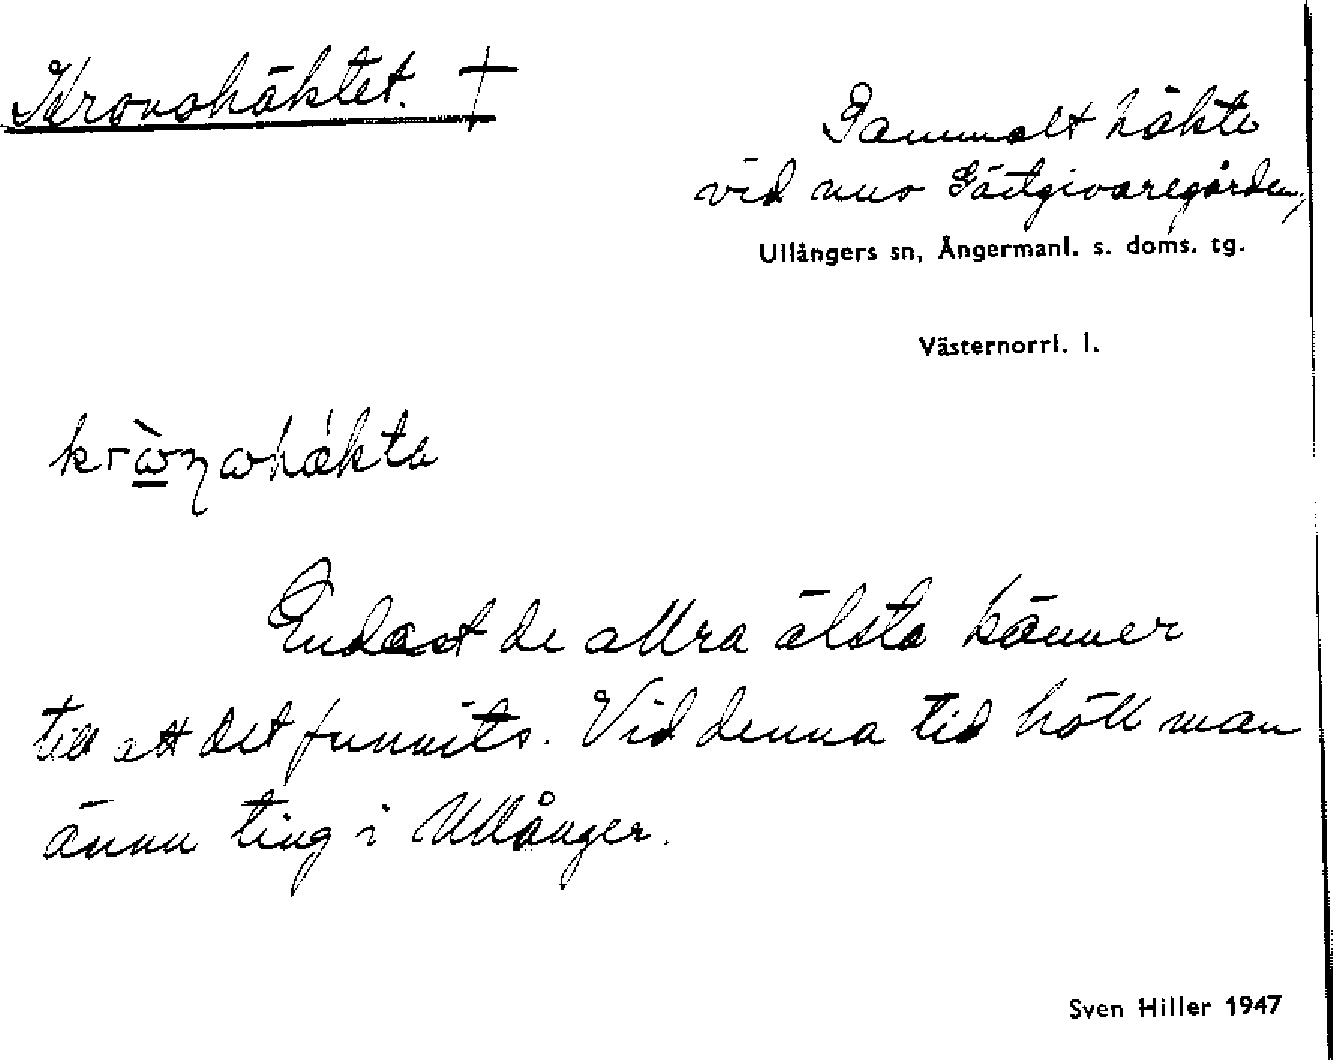 Kronohäktet. †
Gammalt häkte
vid nuv Gästgivaregården,
Ullångers sn, Ångermanl. s. doms. tg.
Västernorrl. l.
Endast de allra älsta känner
till att det funnits. Vid denna tid höll man
ännu ting i Ullånger.
Sven Hiller 1947